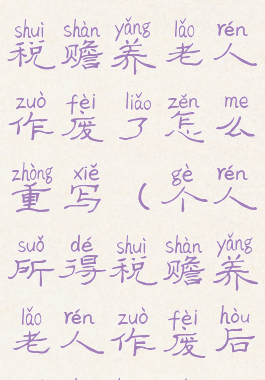 shuì shàn yǎng lǎo rén
税赡养老人
zuò fèi liǎo zěn me
作废了怎么
zhòng xiě gè rén
重写（个人
suǒ dé shuì shàn yǎng
所得税赡养
lǎo rén zuò fèi hòu
老人作废后